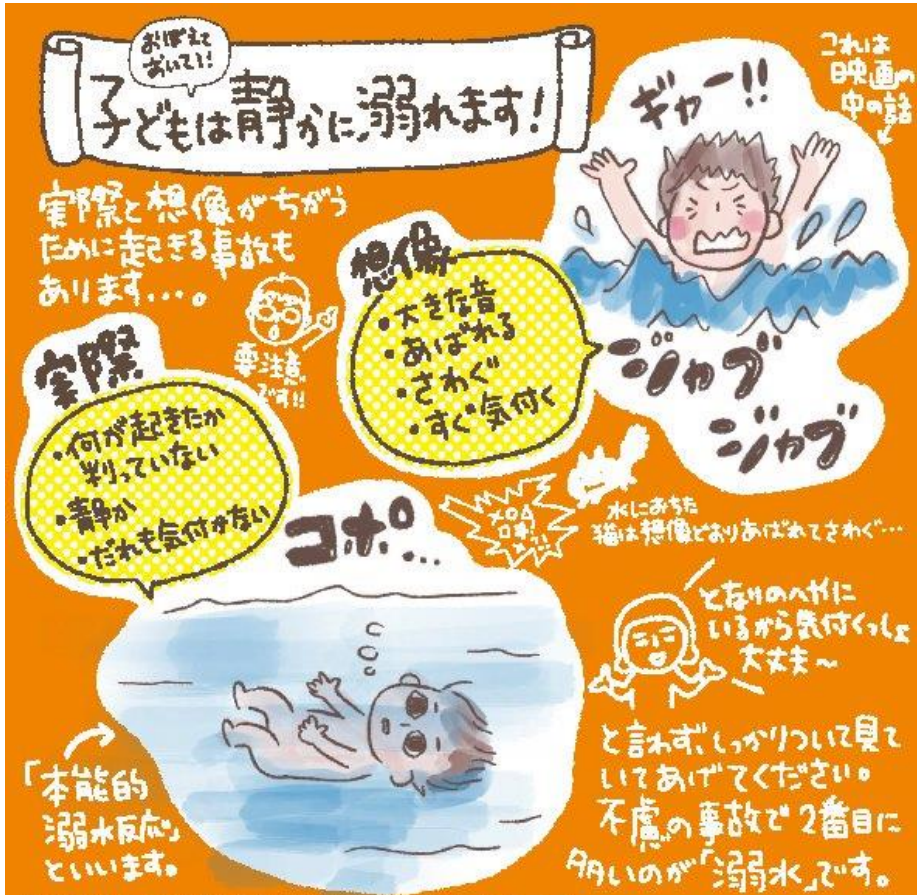 おぼえて
おいて!!
子どもは静かに溺れます!
これは
映画の
中の話
ギャー!!
実際と想像がちがう
ために起きる事故も
あります...。
要注意
です!!
想像
・大きな音
・あばれる
・さわぐ
・すぐ気付く
ジャブ
ジャブ
実際
・何が起きたか
判っていない
・静か
・だれも気付かない
水におちた
猫は想像どおりあばれてさわぐ…
コポ...
となりのへやに
いるから気付くっしょ
大丈夫~
「本能的
溺水反応」
といいます。
と言わず、しっかりついて見て
いてあげてください。
不慮の事故で2番目に
多いのが「溺水」です。